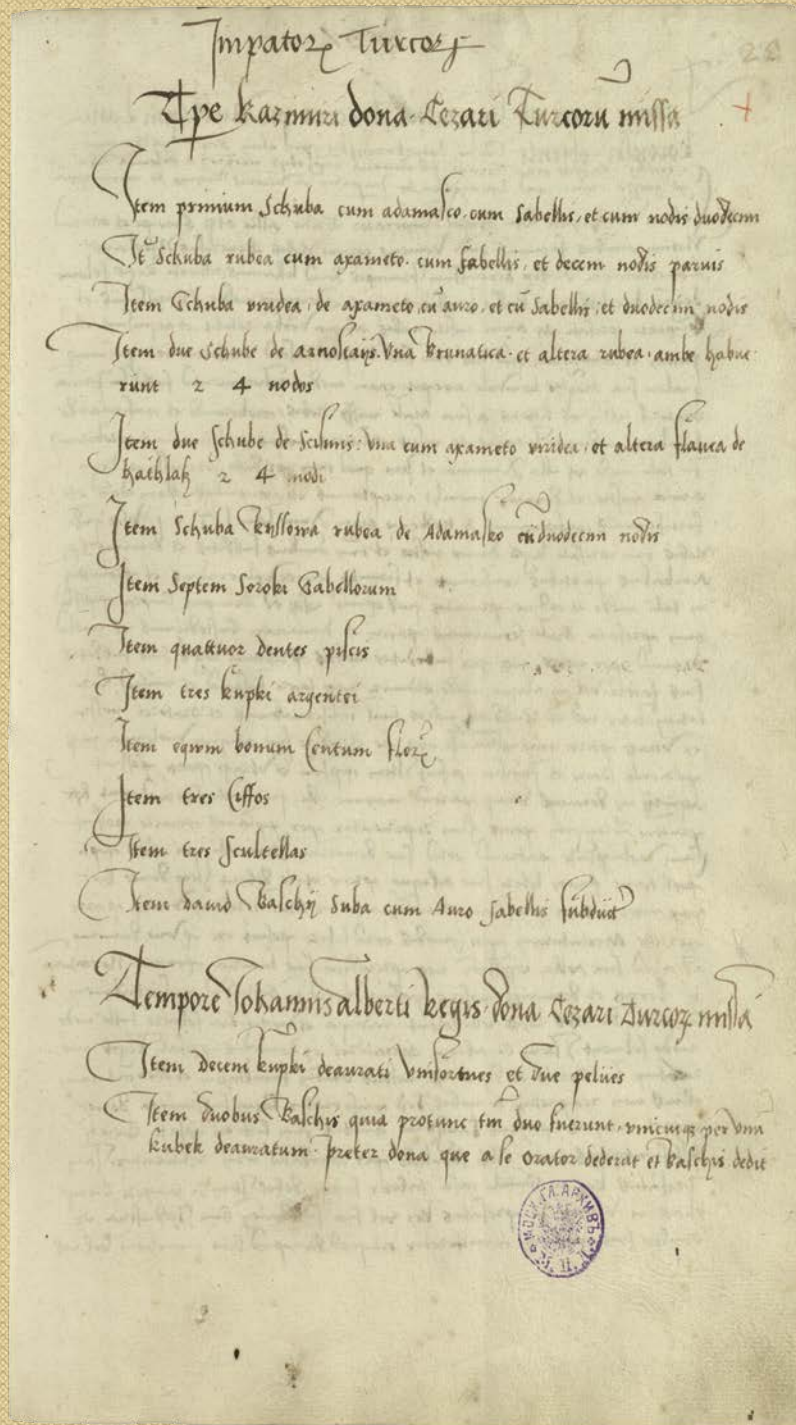 Impatorꝝ Turcorꝝ
22
Tpe Kazimiri dona Cezari Turcorū missa
Item primum Schuba cum adamasco cum sabellis, et cum nodis duodecim
Itē Schuba rubea cum axameto cum sabellis et decem nodis paruis
Item Schuba viridea de axameto cū auro et cū sabellis et duodecim nodis
Item due Schube de Vna brunatica et altera rubea ambe habue
runt 2 4 nodos
Item due schube de Vna cum axameto viridea et altera flauea de
2 4 nodi
Item Schuba rubea de Adamasko cū duodecim nodis
Item Septem Soroki Sabellorum
Item quattuor dentes piscis
Item tres kupki argentei
Item equm bonum Centum florꝝ
Item tres Ciffos
Item tres scultellas
Item Baschÿ Suba cum Auro sabellis
Tempore Johannis alberti Regis dona Cezari Turcorꝝ missa
Item Decem kupki deaurati vniformes et due pelues
Item duobus Baschis quia protunc tm̄ duo fuerunt vnicuiqꝫ per vnū
kubek deauratum preter dona que a se orator dederat et baschis dedit
МОСК. ГЛ. АРХИВЪ